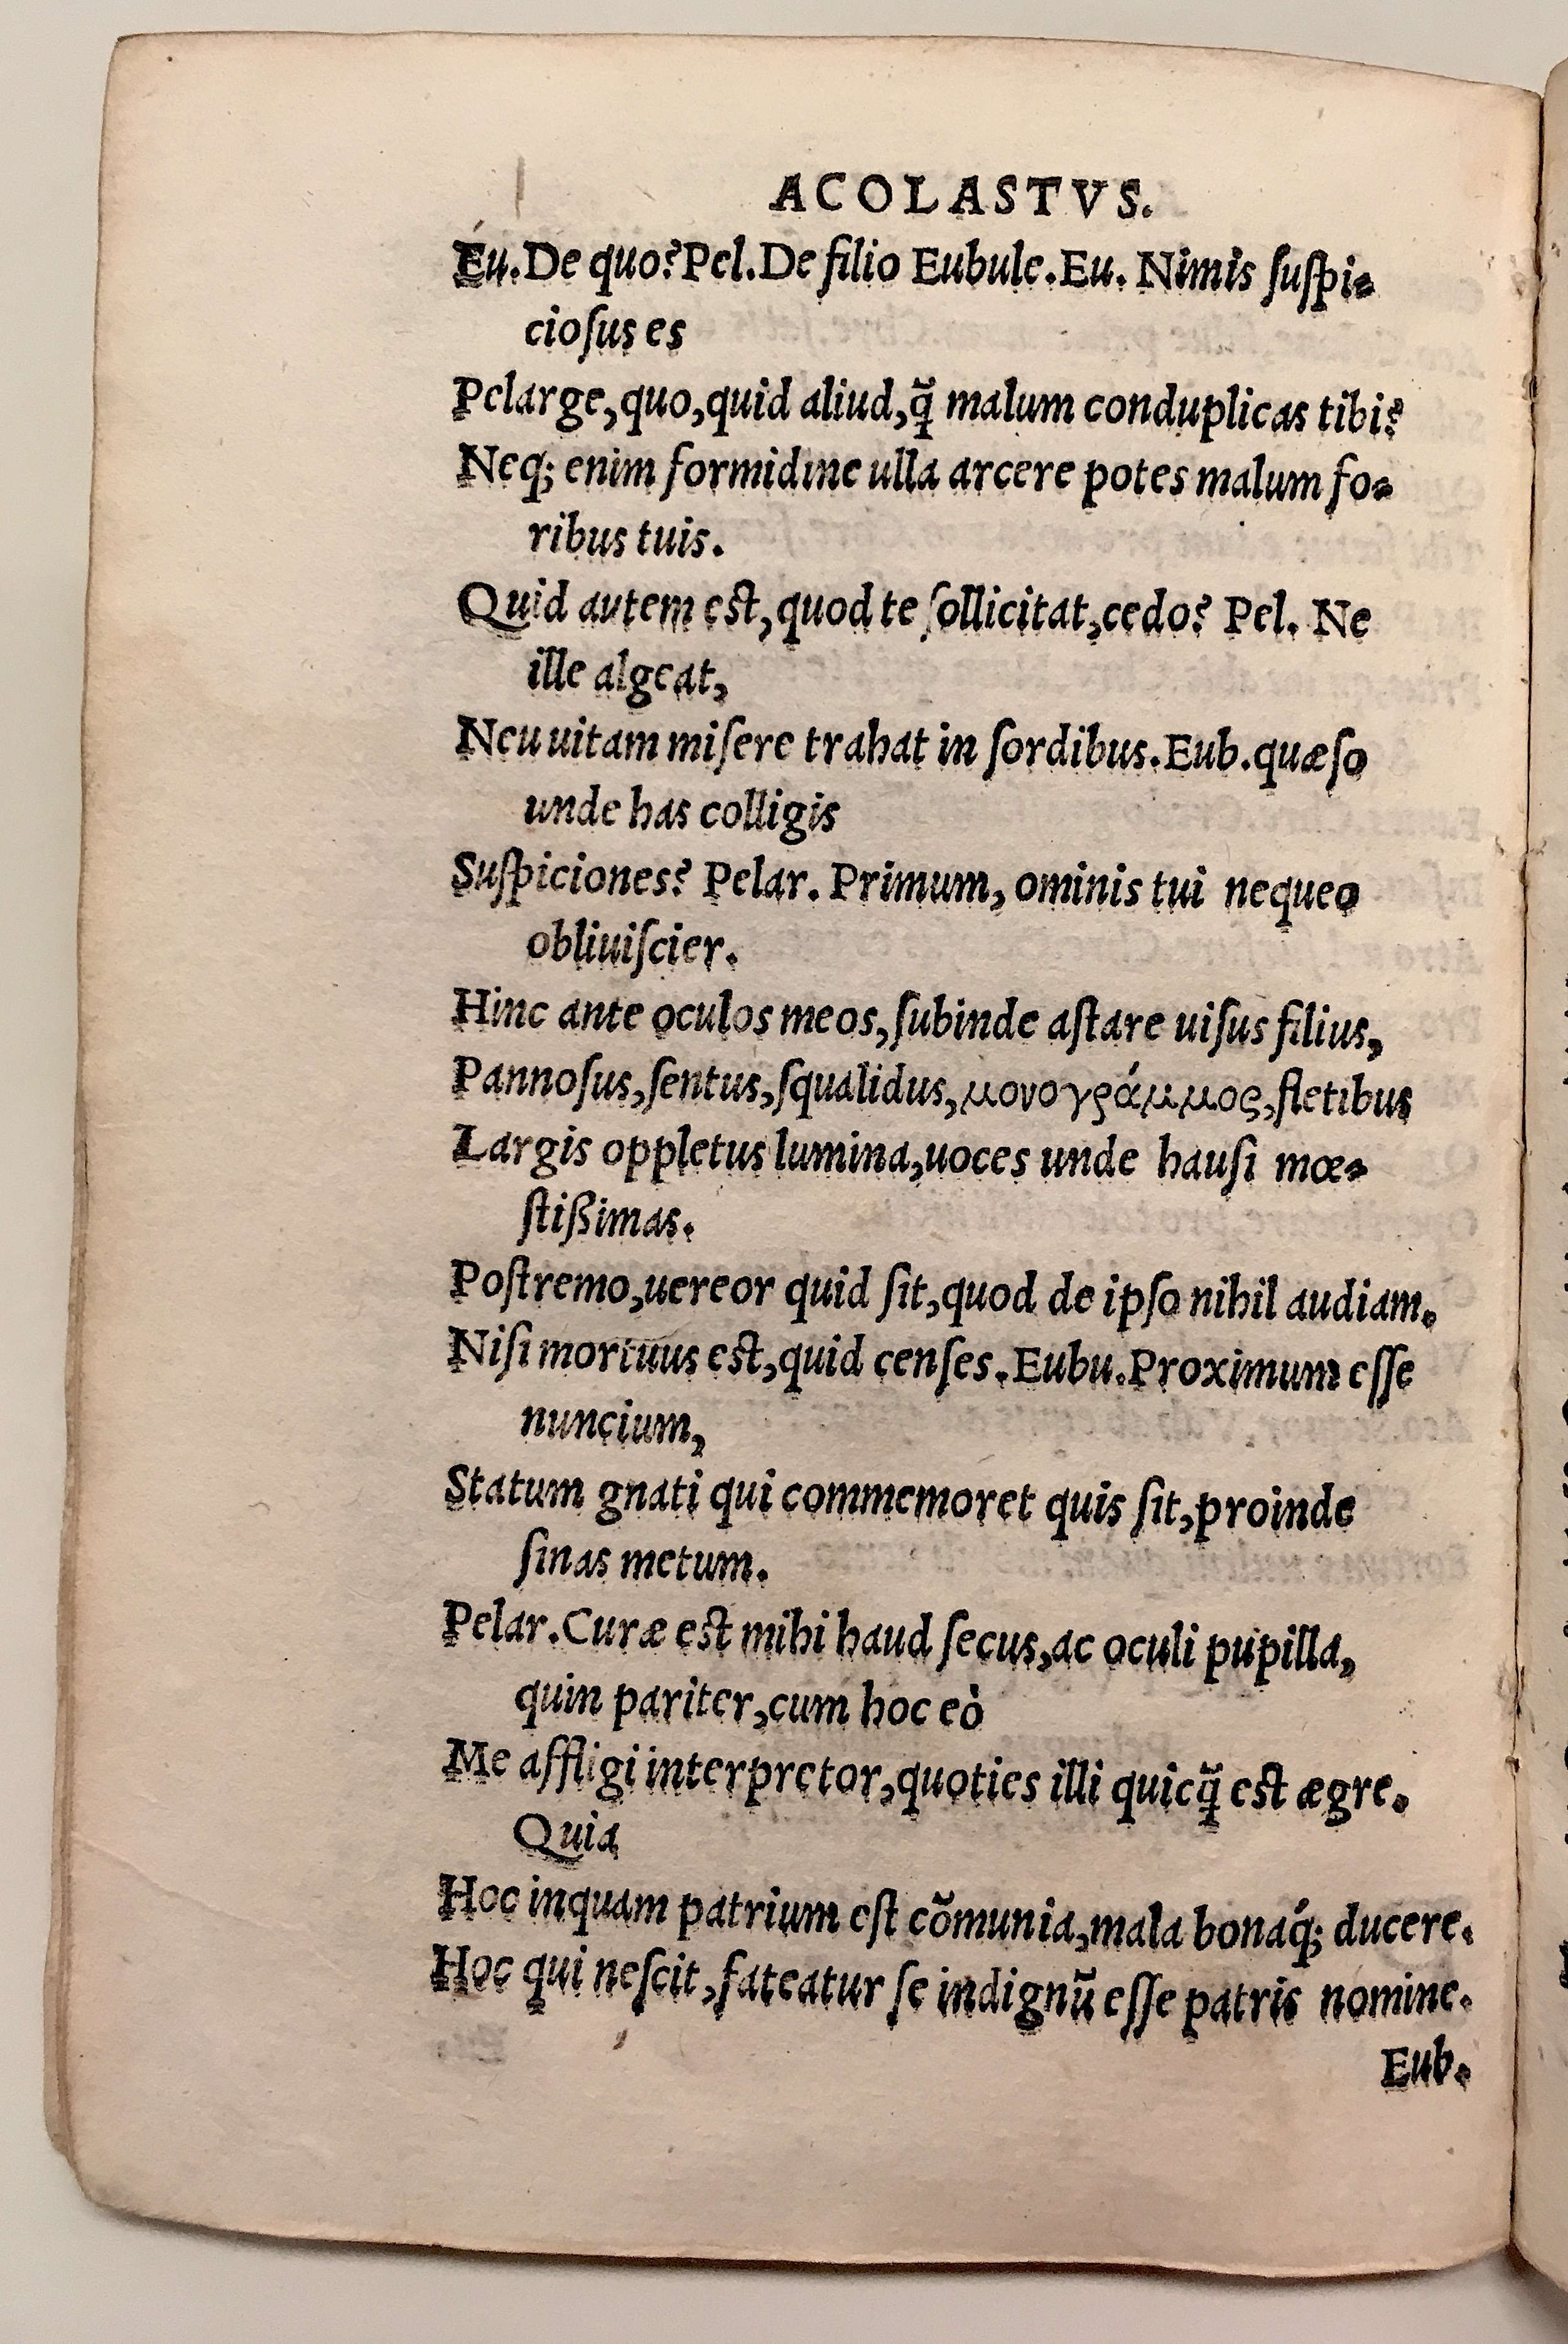 ACOLASTVS.
Eu. De quo? Pel. De filio Eubule. Eu. Nimis ſuſpi-
cioſus es
Pelarge, quo, quid aliud, q̃ malum conduplicas tibi?
Neq; enim formidine ulla arcere potes malum fo-
ribus tuis.
Quid autem eſt, quod te ſollicitat, cedo? Pel. Ne
ille algeat,
Neu uitam miſere trahat in ſordibus. Eub. quæſo
unde has colligis
Suſpiciones? Pelar. Primum, ominis tui nequeo
obliuiſcier.
Hinc ante oculos meos, ſubinde aſtare uiſus filius,
Pannoſus, ſentus, ſqualidus, μονογράμμος, fletibus
Largis oppletus lumina, uoces unde hauſi mœ-
ſtißimas.
Poſtremo, uereor quid ſit, quod de ipſo nihil audiam.
Niſi mortuus eſt, quid cenſes. Eubu. Proximum eſſe
nuncium,
Statum gnati qui commemoret quis ſit, proinde
ſinas metum.
Pelar. Curæ eſt mihi haud ſecus, ac oculi pupilla,
quin pariter, cum hoc eò
Me affligi interpretor, quoties illi quicq̃ eſt ægre.
Quia
Hoc inquam patrium eſt cõmunia, mala bonaq́; ducere.
Hoc qui neſcit, fateatur ſe indignũ eſſe patris nomine.
Eub.